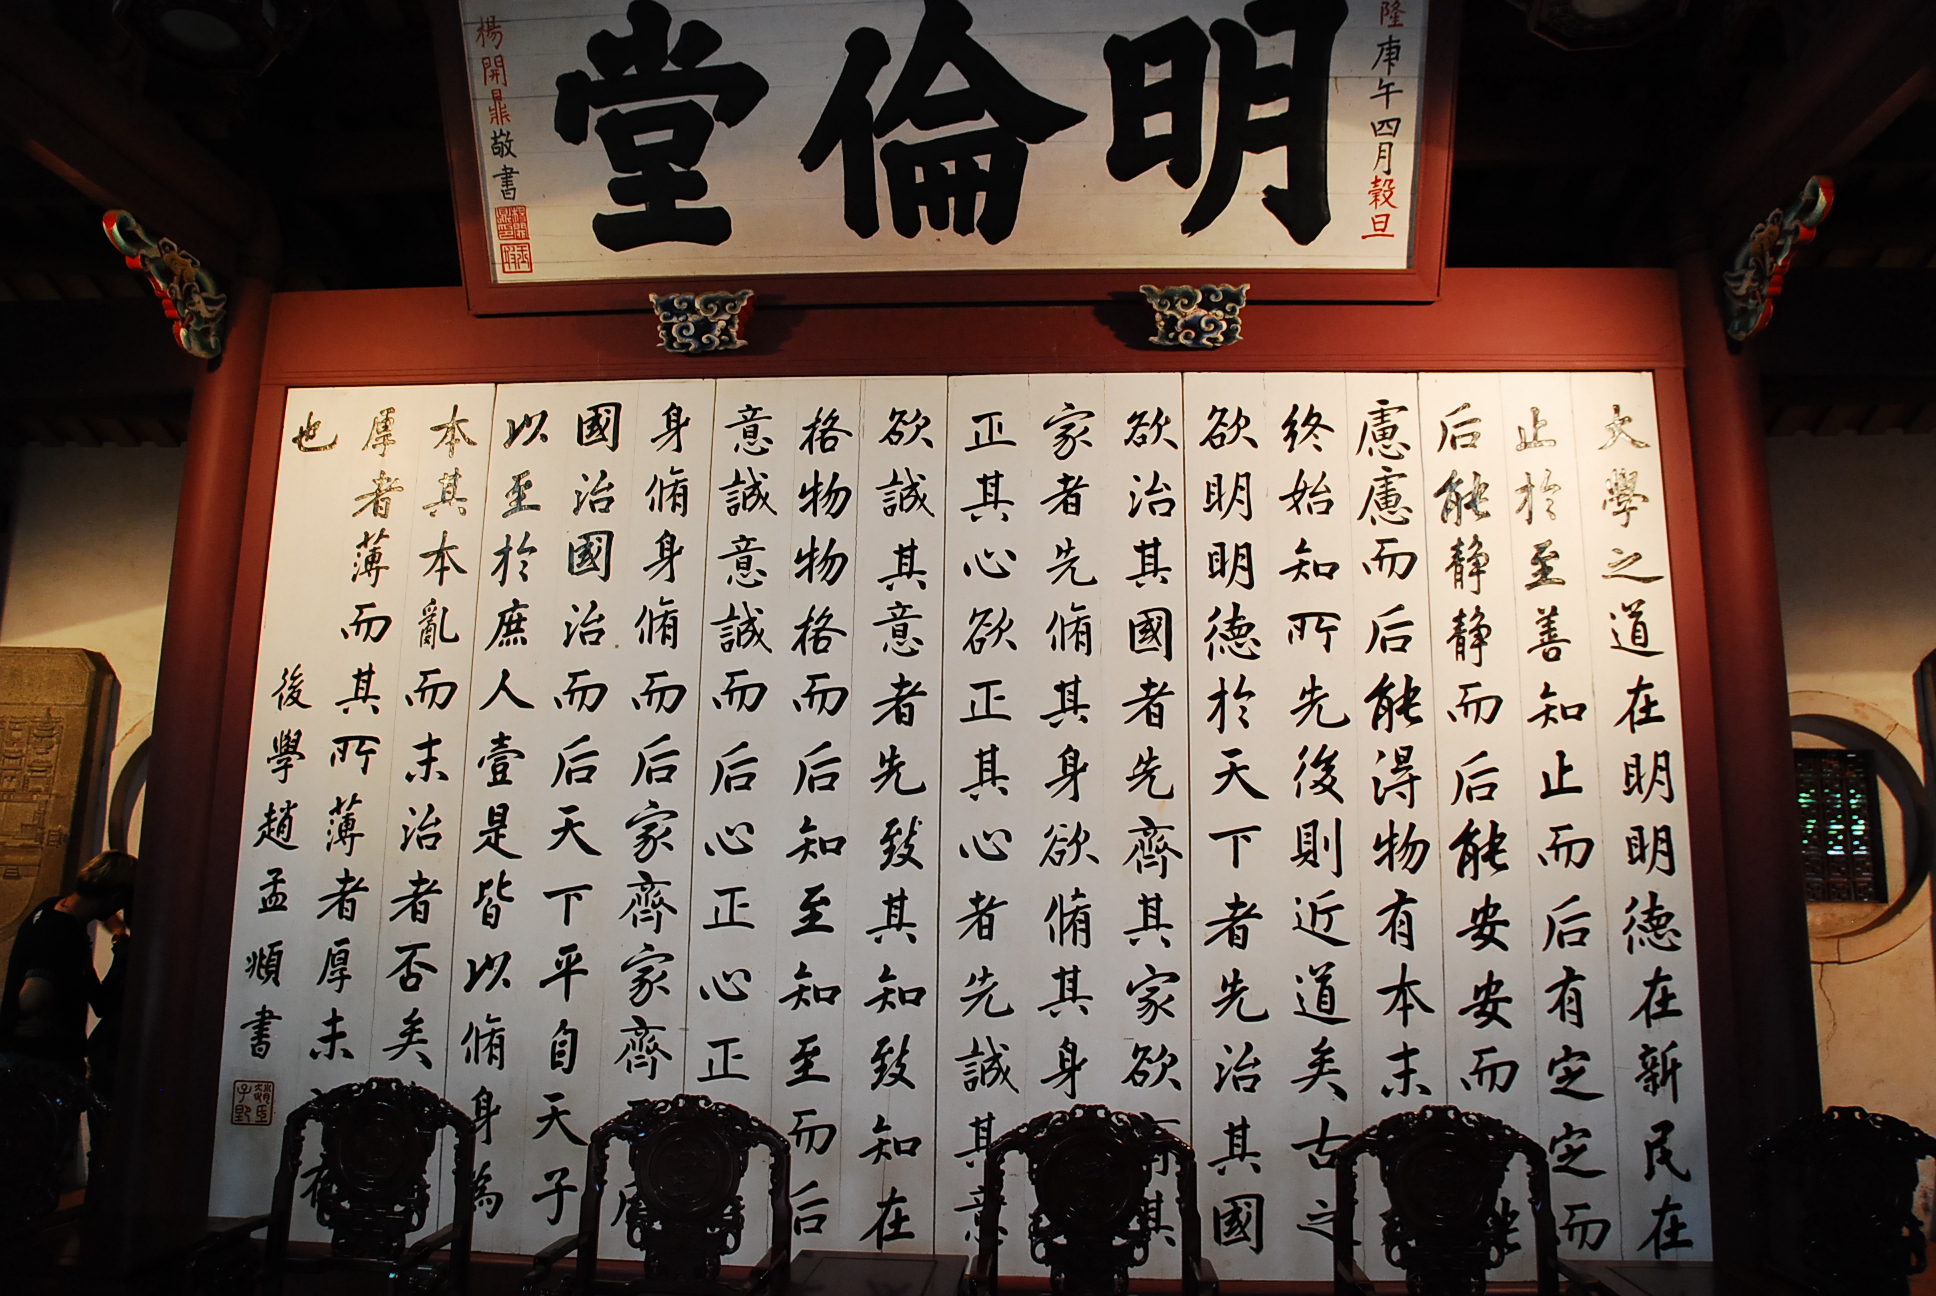 隆庚午四月穀旦
明倫堂
楊開鼎敬書
大學之道在明明德在新民在
止於至善知止而后有定定而
后能静静而后能安安而能
慮慮而后能得物有本末
終始知所先後則近道矣古之
欲明明德於天下者先治其國
欲治其國者先齊其家欲其
家者先脩其身欲脩其身
正其心欲正其心者先誠其意
欲誠其意者先致其知致知在
格物物格而后知至知至而后
意誠意誠而后心正心正
身脩身脩而后家齊家齊而后
國治國治而后天下平自天子
以至於庶人壹是皆以脩身為
本其本亂而末治者否矣
厚者薄而其所薄者厚未之有
也
後學趙孟頫書